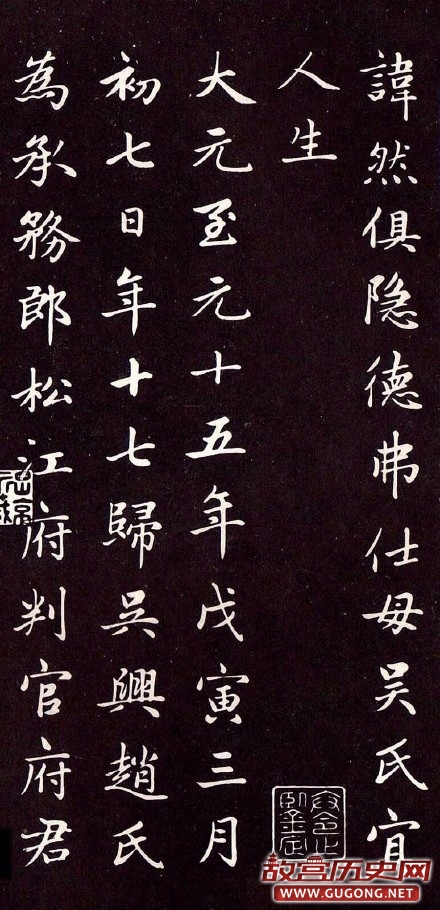 諱然俱隐德弗仕母吴氏宜
人生
大元至元十五年戊寅三月
初七日年十七歸吴興趙氏
為承務郎松江府判官府君
故宫历史网
www.GUGONG.net